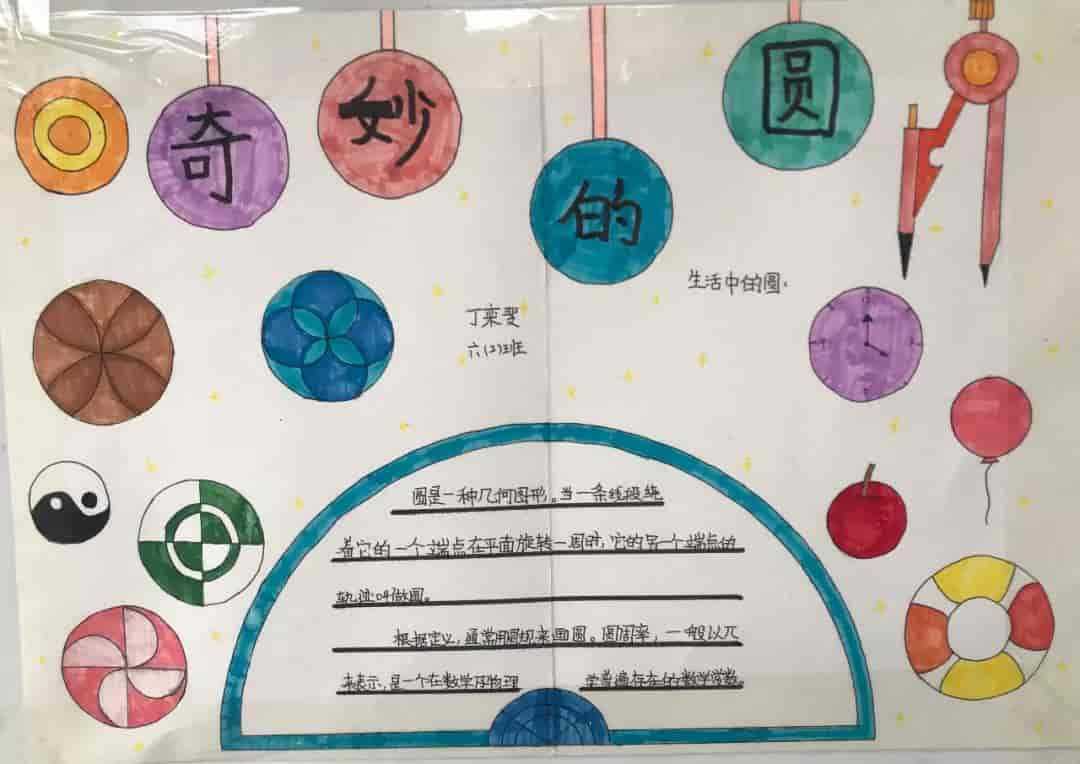 奇妙的圆
生活中的圆.
丁栾斐
六(2)班
圆是一种几何图形。当一条线段绕
着它的一个端点在平面旋转一周时,它的另一个端点的
轨迹叫做圆。
根据定义,通常用圆规来画圆。圆周率,一般以π
来表示,是一个在数学及物理 学普遍存在的数学常数。